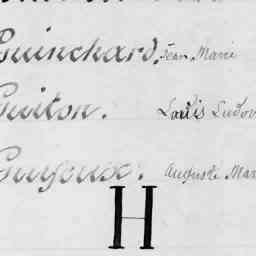 Guinchard. Jean Marie
Guiton. Louis Ludov
Guyoux. Auguste Mar
H